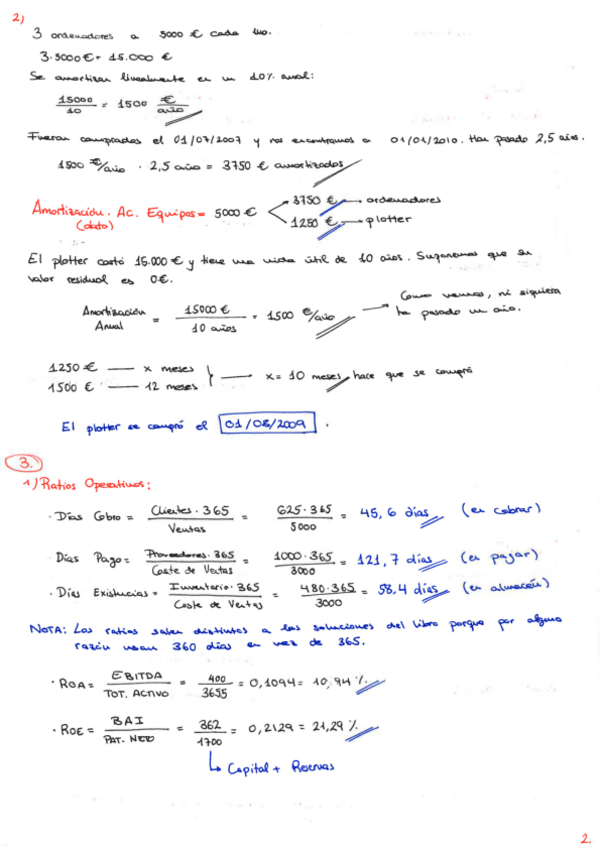 2)
3 ordenadores a 5000 € cada uno.
3·5000€ = 15.000 €
Se amortizan linealmente en un 10% anual:
15000/10 = 1500 €/año
Fueron comprados el 01/07/2007 y nos encontramos a 01/01/2010. Han pasado 2,5 años.
1500 €/año · 2,5 año = 3750 € amortizados
Amortización. Ac. Equipos = 5000 € 3750 € ordenadores
(dato) 1250 € plotter
El plotter costó 15.000 € y tiene una vida útil de 10 años. Suponemos que su
valor residual es 0€.
Amortización Anual = 15000 €/10 años = 1500 €/año Como vemos, ni siquiera
ha pasado un año.
1250 € — x meses
1500 € — 12 meses x = 10 meses, hace que se compró
El plotter se compró el 01/03/2009.
3.
1) Ratios Operativos:
· Días Cobro = Clientes · 365/Ventas = 625·365/5000 = 45,6 días (en cobrar)
Días Pago = Proveedores · 365/Coste de Ventas = 1000·365/3000 = 121,7 días (en pagar)
· Días Existencias = Inventario · 365/Coste de Ventas = 480·365/3000 = 58,4 días (en almacén)
NOTA: Los ratios salen distintos a las soluciones del libro porque por alguna
razón usan 360 días en vez de 365.
· ROA = EBITDA/TOT. ACTIVO = 400/3655 = 0,1094 = 10,94 %
· ROE = BAI/PAT. NETO = 362/1700 = 0,2129 = 21,29 %
Capital + Reservas
2.